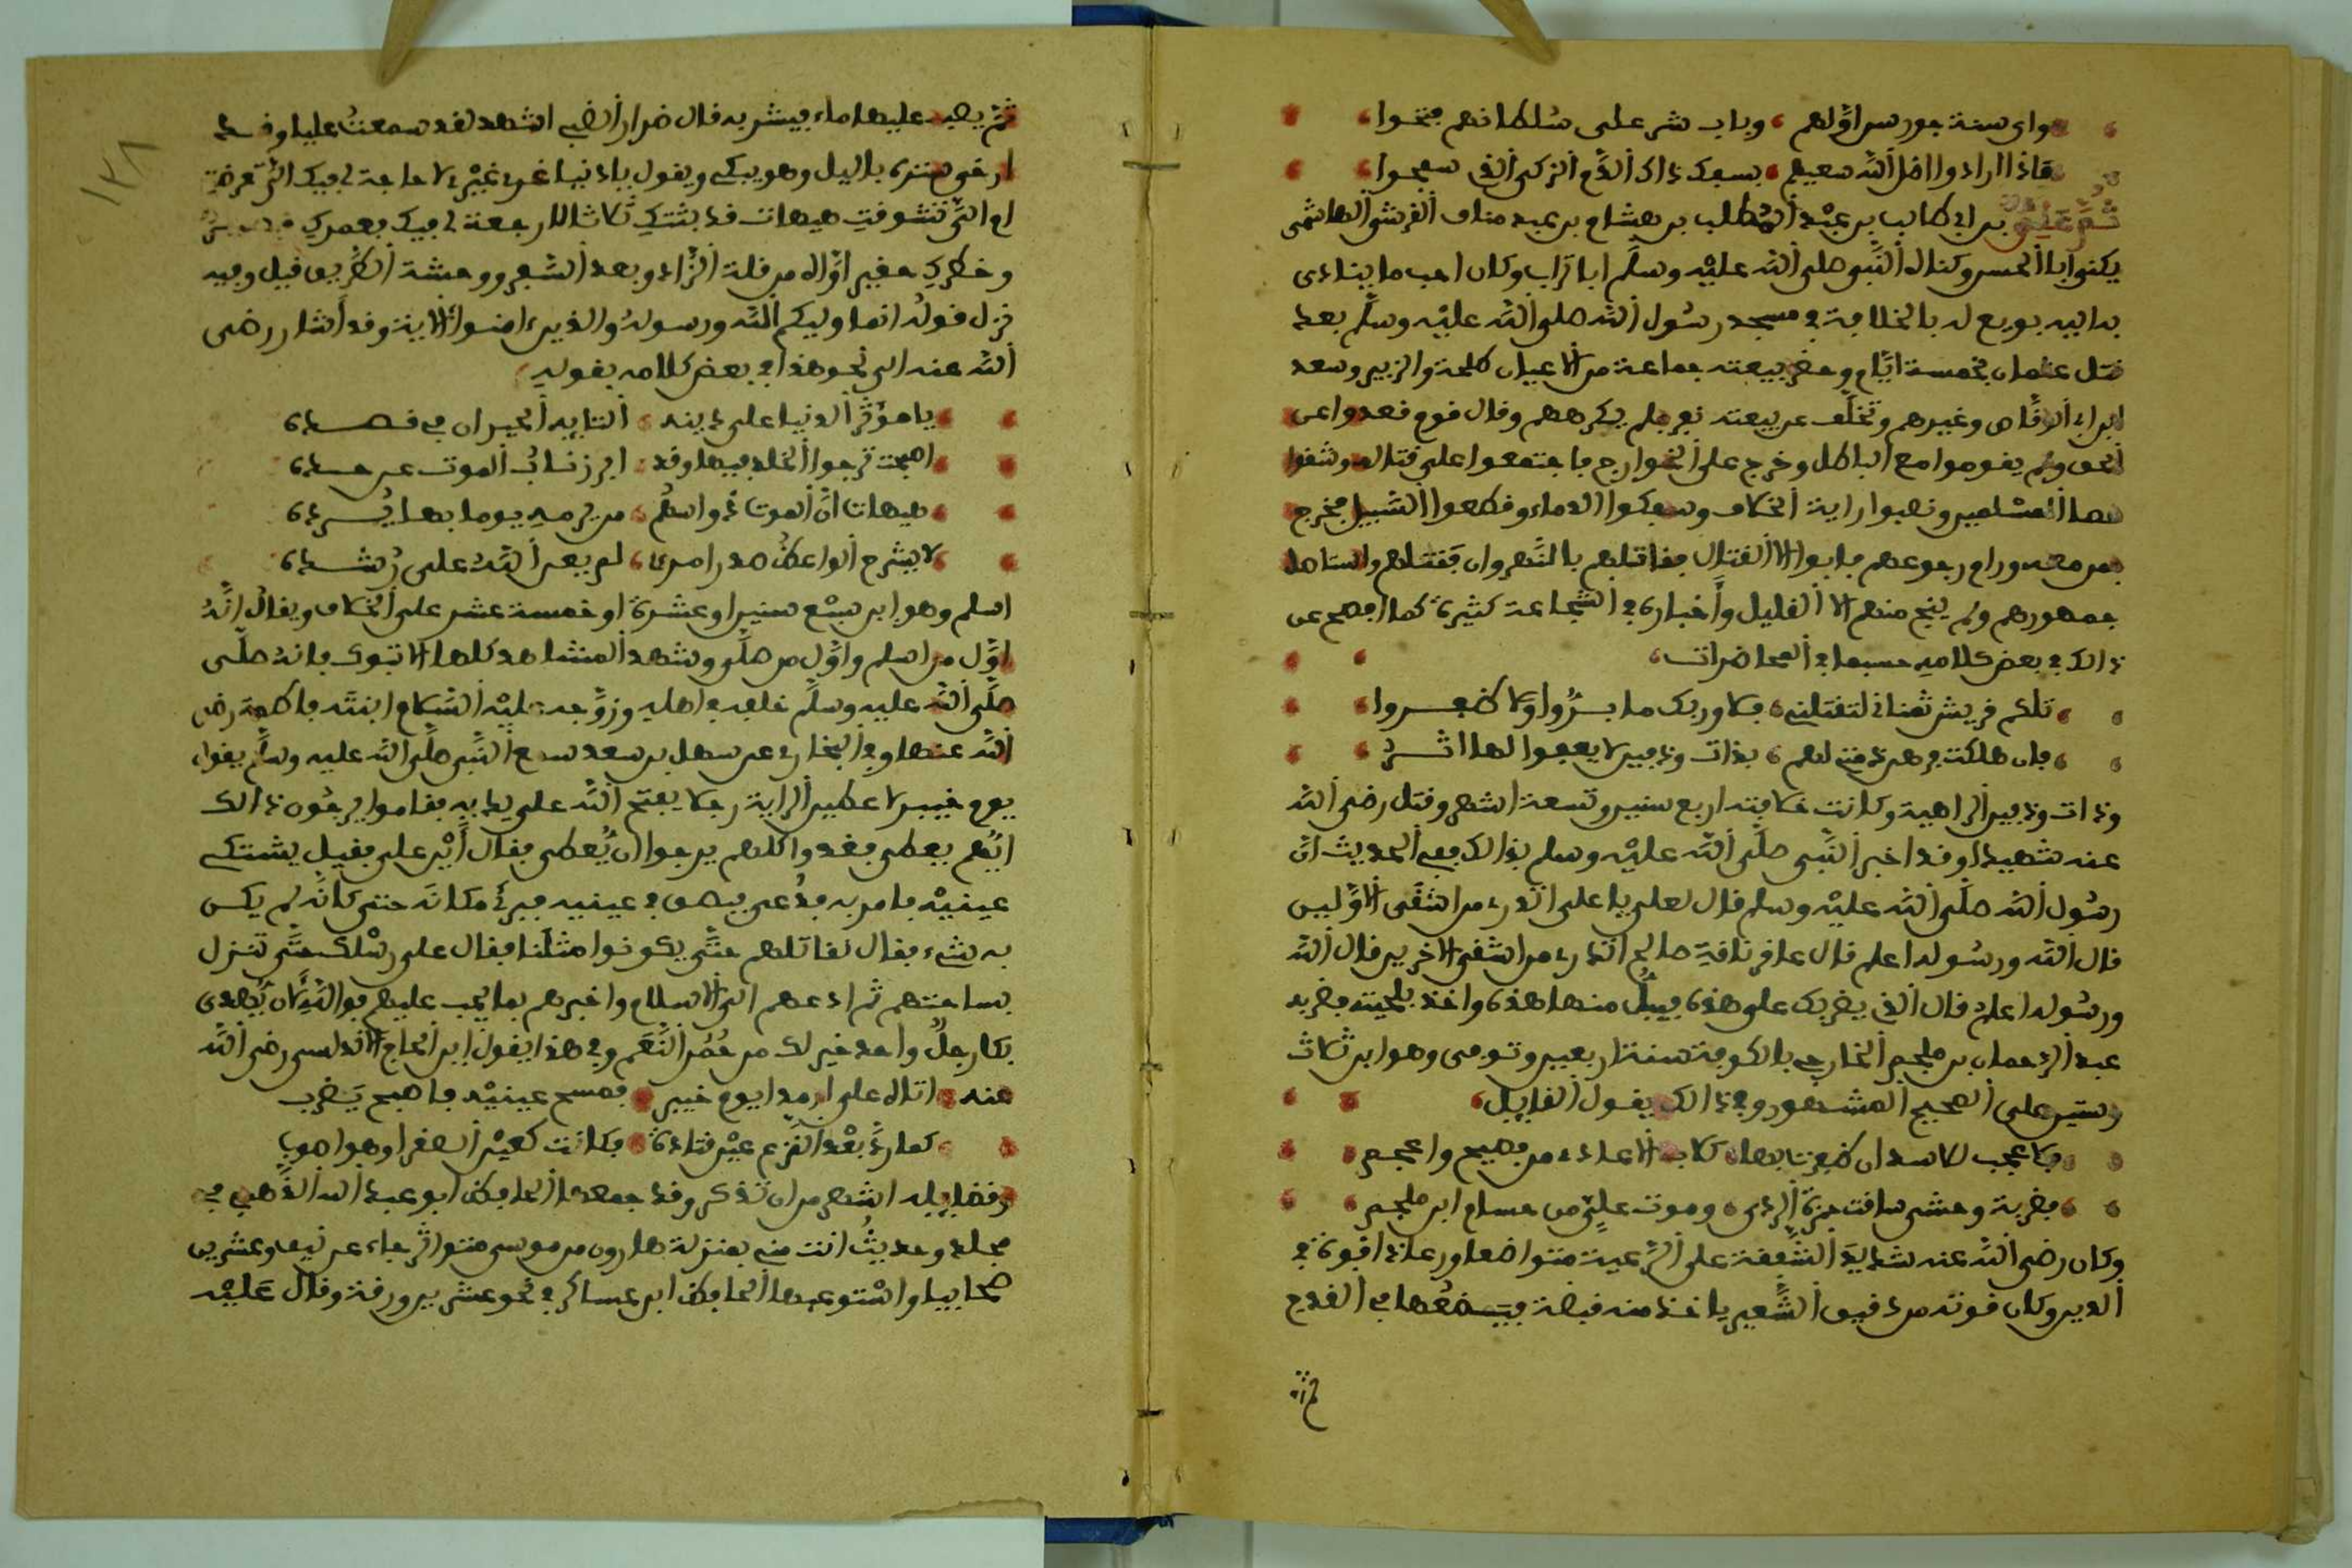 واي سنة جور سن اولهم وباب شر على سلطانهم فتحوا
فاذا ارادوا اضل الله سعيهم بسفك ذاك الدم الزكي الذي سفحوا
ثم علي بن ابي طالب بن عبد المطلب بن هشام بن عبد مناف القرشي الهاشمي
يكنى ابا الحسن وكناه النبي صلى الله عليه وسلم ابا تراب وكان احب ما ينادى
به اليه بويع له بالخلافة في مسجد رسول الله صلى الله عليه وسلم بعد
قتل عثمان بخمسة ايام وحضر بيعته جماعة من الاعيان طلحة والزبير وسعد
ابن ابي الوقاص وغيرهم وتخلف عن بيعته نفر فلم يكرههم وقال قوم قعدوا عن
الحق ولم يقوموا مع الباطل وخرج عليه الخوارج فاجتمعوا على قتاله وشقوا
عصا المسلمين ونصبوا راية الخلاف وسفكوا الدماء وقطعوا السبيل فخرج
بمن معه ورام رجوعهم فابوا الا القتال فقاتلهم بالنهروان فقتلهم واستاصل
جمهورهم ولم ينج منهم الا القليل واخباره في الشجاعة كثيرة كما افصح عن
ذالك في بعض كلامه حسبما في المحاضرات
تلكم قريش تمناني لتقتلني فلا وربك ما بزوا ولا ظفروا
فان هلكت فرهن ذمتي لهم بذات ودقين لا يعفوا لها اثر
وذات ودقين الداهية وكانت خلافته اربع سنين وتسعة اشهر وقتل رضي الله
عنه شهيدا وقد اخبر النبي صلى الله عليه وسلم بذالك ففي الحديث ان
رسول الله صلى الله عليه وسلم قال لعلي يا علي اتدري من اشقى الاولين
قال الله ورسوله اعلم قال عاقر ناقة صالح اتدري من اشقى الاخرين قال الله
ورسوله اعلم قال الذي يضربك على هذه فيبل منها هذه واخذ بلحيته فضربه
عبد الرحمان بن ملجم الخارجي بالكوفة سنة اربعين وتوفي وهو ابن ثلاث
وستين على الصحيح المشهور وفي ذالك يقول القايل
فلا عجب للاسد ان ظفرت بها كلاب الاعادي من فصيح واعجم
فضربة وحشي سقت حمزة الردى وموت علي من حسام ابن ملجم
وكان رضي الله عنه شديد الشفقة على الرعية متواضعا ورعا ذا قوة في
الدين وكان قوته من دقيق الشعير ياخذ منه قبضة فيضعها في القدح
ثم
١٢٨
ثم يصب عليها ماء فيشربه قال ضرار الضبي اشهد لقد سمعت عليا وقد
ارخى ستره بالليل وهو يبكي ويقول يا دنيا غري غيري لا حاجة لي فيك الي تعرضت
ام الي تشوقت هيهات قد بتتك ثلاثا لا رجعة لي فيك فعمرك قصير
وخطرك حقير اواه من قلة الزاد وبعد السفر ووحشة الطريق قيل وفيه
نزل قوله انما وليكم الله ورسوله والذين ءامنوا الاية وقد اشار رضي
الله عنه الى نحو هذا في بعض كلامه بقوله
يا مؤثر الدنيا على دينه التايه الحيران في قصده
اصبحت ترجوا الخلد فيها وقد ابرز ناب الموت عن حده
هيهات ان الموت ذو اسهم من يرمه يوما بها يرده
لا يشرح الواعظ صدر امرئ لم يعزم الله على رشده
اسلم وهو ابن سبع سنين او عشرة او خمسة عشر على الخلاف ويقال انه
اول من اسلم واول من صلى وشهد المشاهد كلها الا تبوك فانه صلى
صلى الله عليه وسلم خلفه في اهله وزوجه عليه السلام ابنته فاطمة رضي
الله عنها وفي البخاري عن سهل بن سعد سمع النبي صلى الله عليه وسلم يقول
يوم خيبر لاعطين الراية رجلا يفتح الله على يديه فقاموا يرجون ذالك
ايهم يعطى فغدوا كلهم يرجوا ان يعطى فقال اين علي فقيل يشتكي
عينيه فامر به فدعي فبصق في عينيه فبرئ مكانه حتى كانه لم يكن
به شيء فقال نقاتلهم حتى يكونوا مثلنا فقال على رسلك حتى تنزل
بساحتهم ثم ادعهم الى الاسلام واخبرهم بما يجب عليهم فوالله لان يهدى
بك رجل واحد خير لك من حمر النعم وفي هذا يقول ابن الحاج الاندلسي رضي الله
عنه اتاه علي ارمدا يوم خيبر فمسح عينيه فاصبح يضرب
كما رد بعد القزع عين قتادة فكانت كعين الصقر او هو اصوب
وفضايله اشهر من ان تذكر وقد جمعها الحافظ ابو عبد الله الذهبي في
مجلد وحديث انت مني بمنزلة هارون من موسى متواتر جاء عن نيف وعشرين
صحابيا واستوعبها الحافظ ابن عساكر في نحو عشرين ورقة وقال عليه